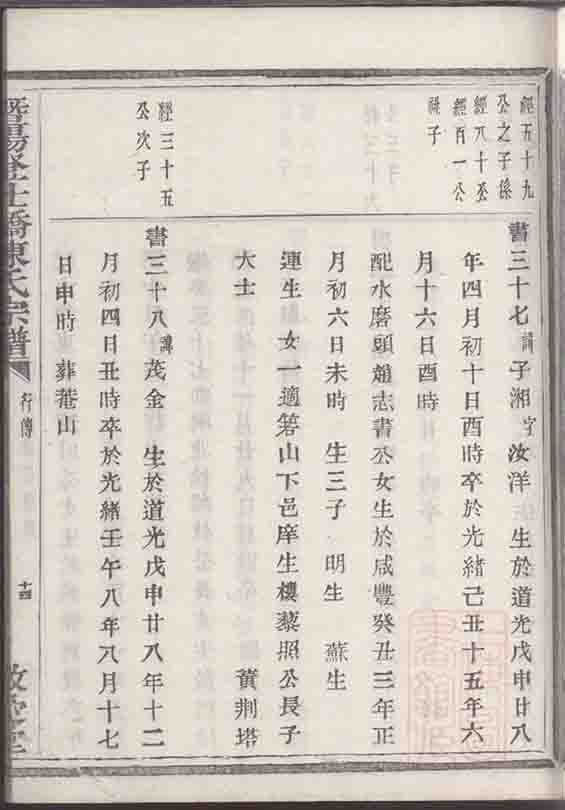 經五十九
公之子係
經八十丞
經百一公
祧子
書三十七諱子湘字汝洋 生於道光戊申廿八
年四月初十日酉時卒於光緒己丑十五年六
月十六日酉時
配水磨頭趙志書公女生於咸豐癸丑三年正
月初六日未時 生三子 明生 蘇生
連生 女一適箬山下邑庠生樓藜照公長子
大士 黃荆塔
經三十五
公次子
書三十八諱茂金 生於道光戊申廿八年十二
月初四日丑時卒於光緒壬午八年八月十七
日申時葬菴山
暨陽登仕橋陳氏宗譜
行傳
十四